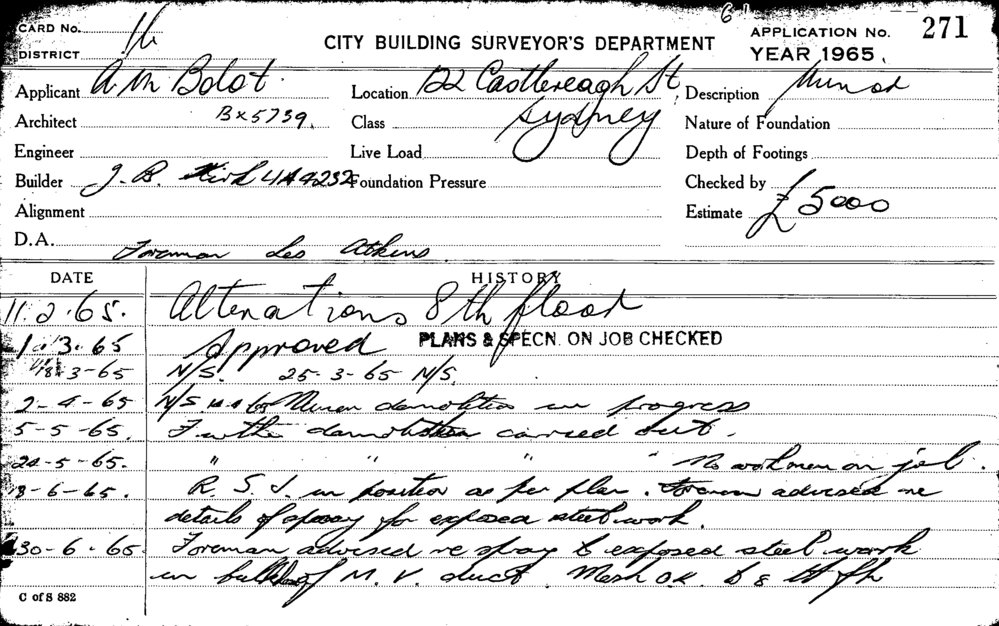 CARD No. 6
DISTRICT
CITY BUILDING SURVEYOR'S DEPARTMENT
APPLICATION No. 271
YEAR 1965.
Applicant A. M Bolot. Location 122 Castlereagh St, Description Minor
Architect Bx5739. Class Sydney Nature of Foundation
Engineer Live Load Depth of Footings
Builder J. B. Kirk UA4232 Foundation Pressure Checked by
Alignment Estimate £5000
D.A.
Foreman Les Atkins
DATE HISTORY
11.2.65. Alterations 8th floor
1.3.65 Approved PLANS & SPECN. ON JOB CHECKED
18-3-65 N/S. 25-3-65 N/S.
2-4-65 N/S Minor demolition in progress
5-5-65. Further demolition carried out.
-5-65. " " " " No workmen on job.
8-6-65. R. S. J. in position as per plan. Foreman advised re
details of spray for exposed steel work.
30-6-65. Foreman advised re spray to exposed steel work
in of M. V. duct. Mesh O.K. to
C of S 882